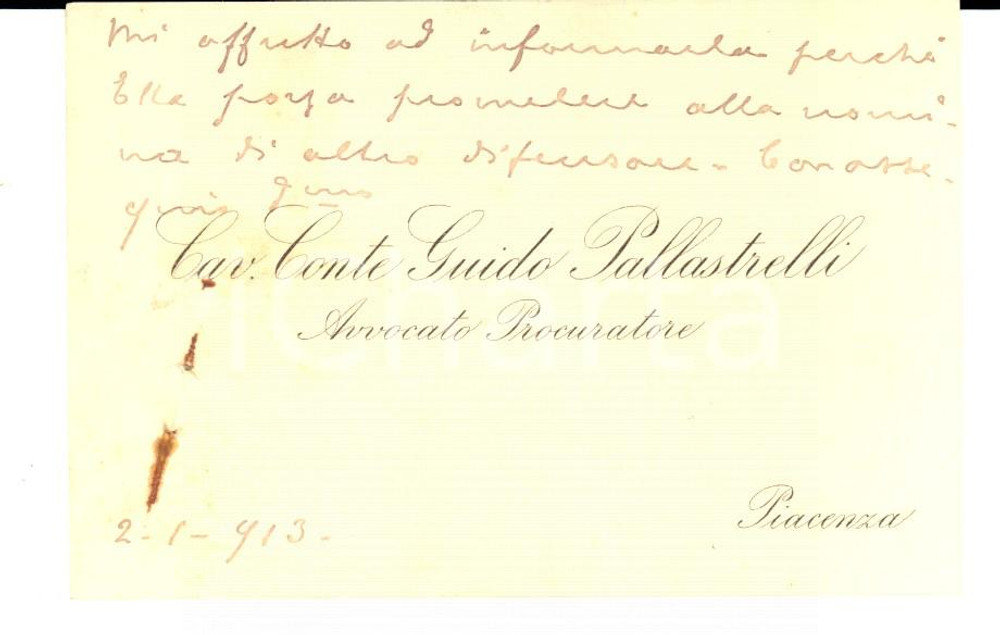 Mi affretto ad informarla perchè
Ella possa promuovere alla nomi-
na di altro difensore - Con osse-
quio
Cav. Conte Guido Pallastrelli
Avvocato Procuratore
iCharta
Piacenza
2-1-913-